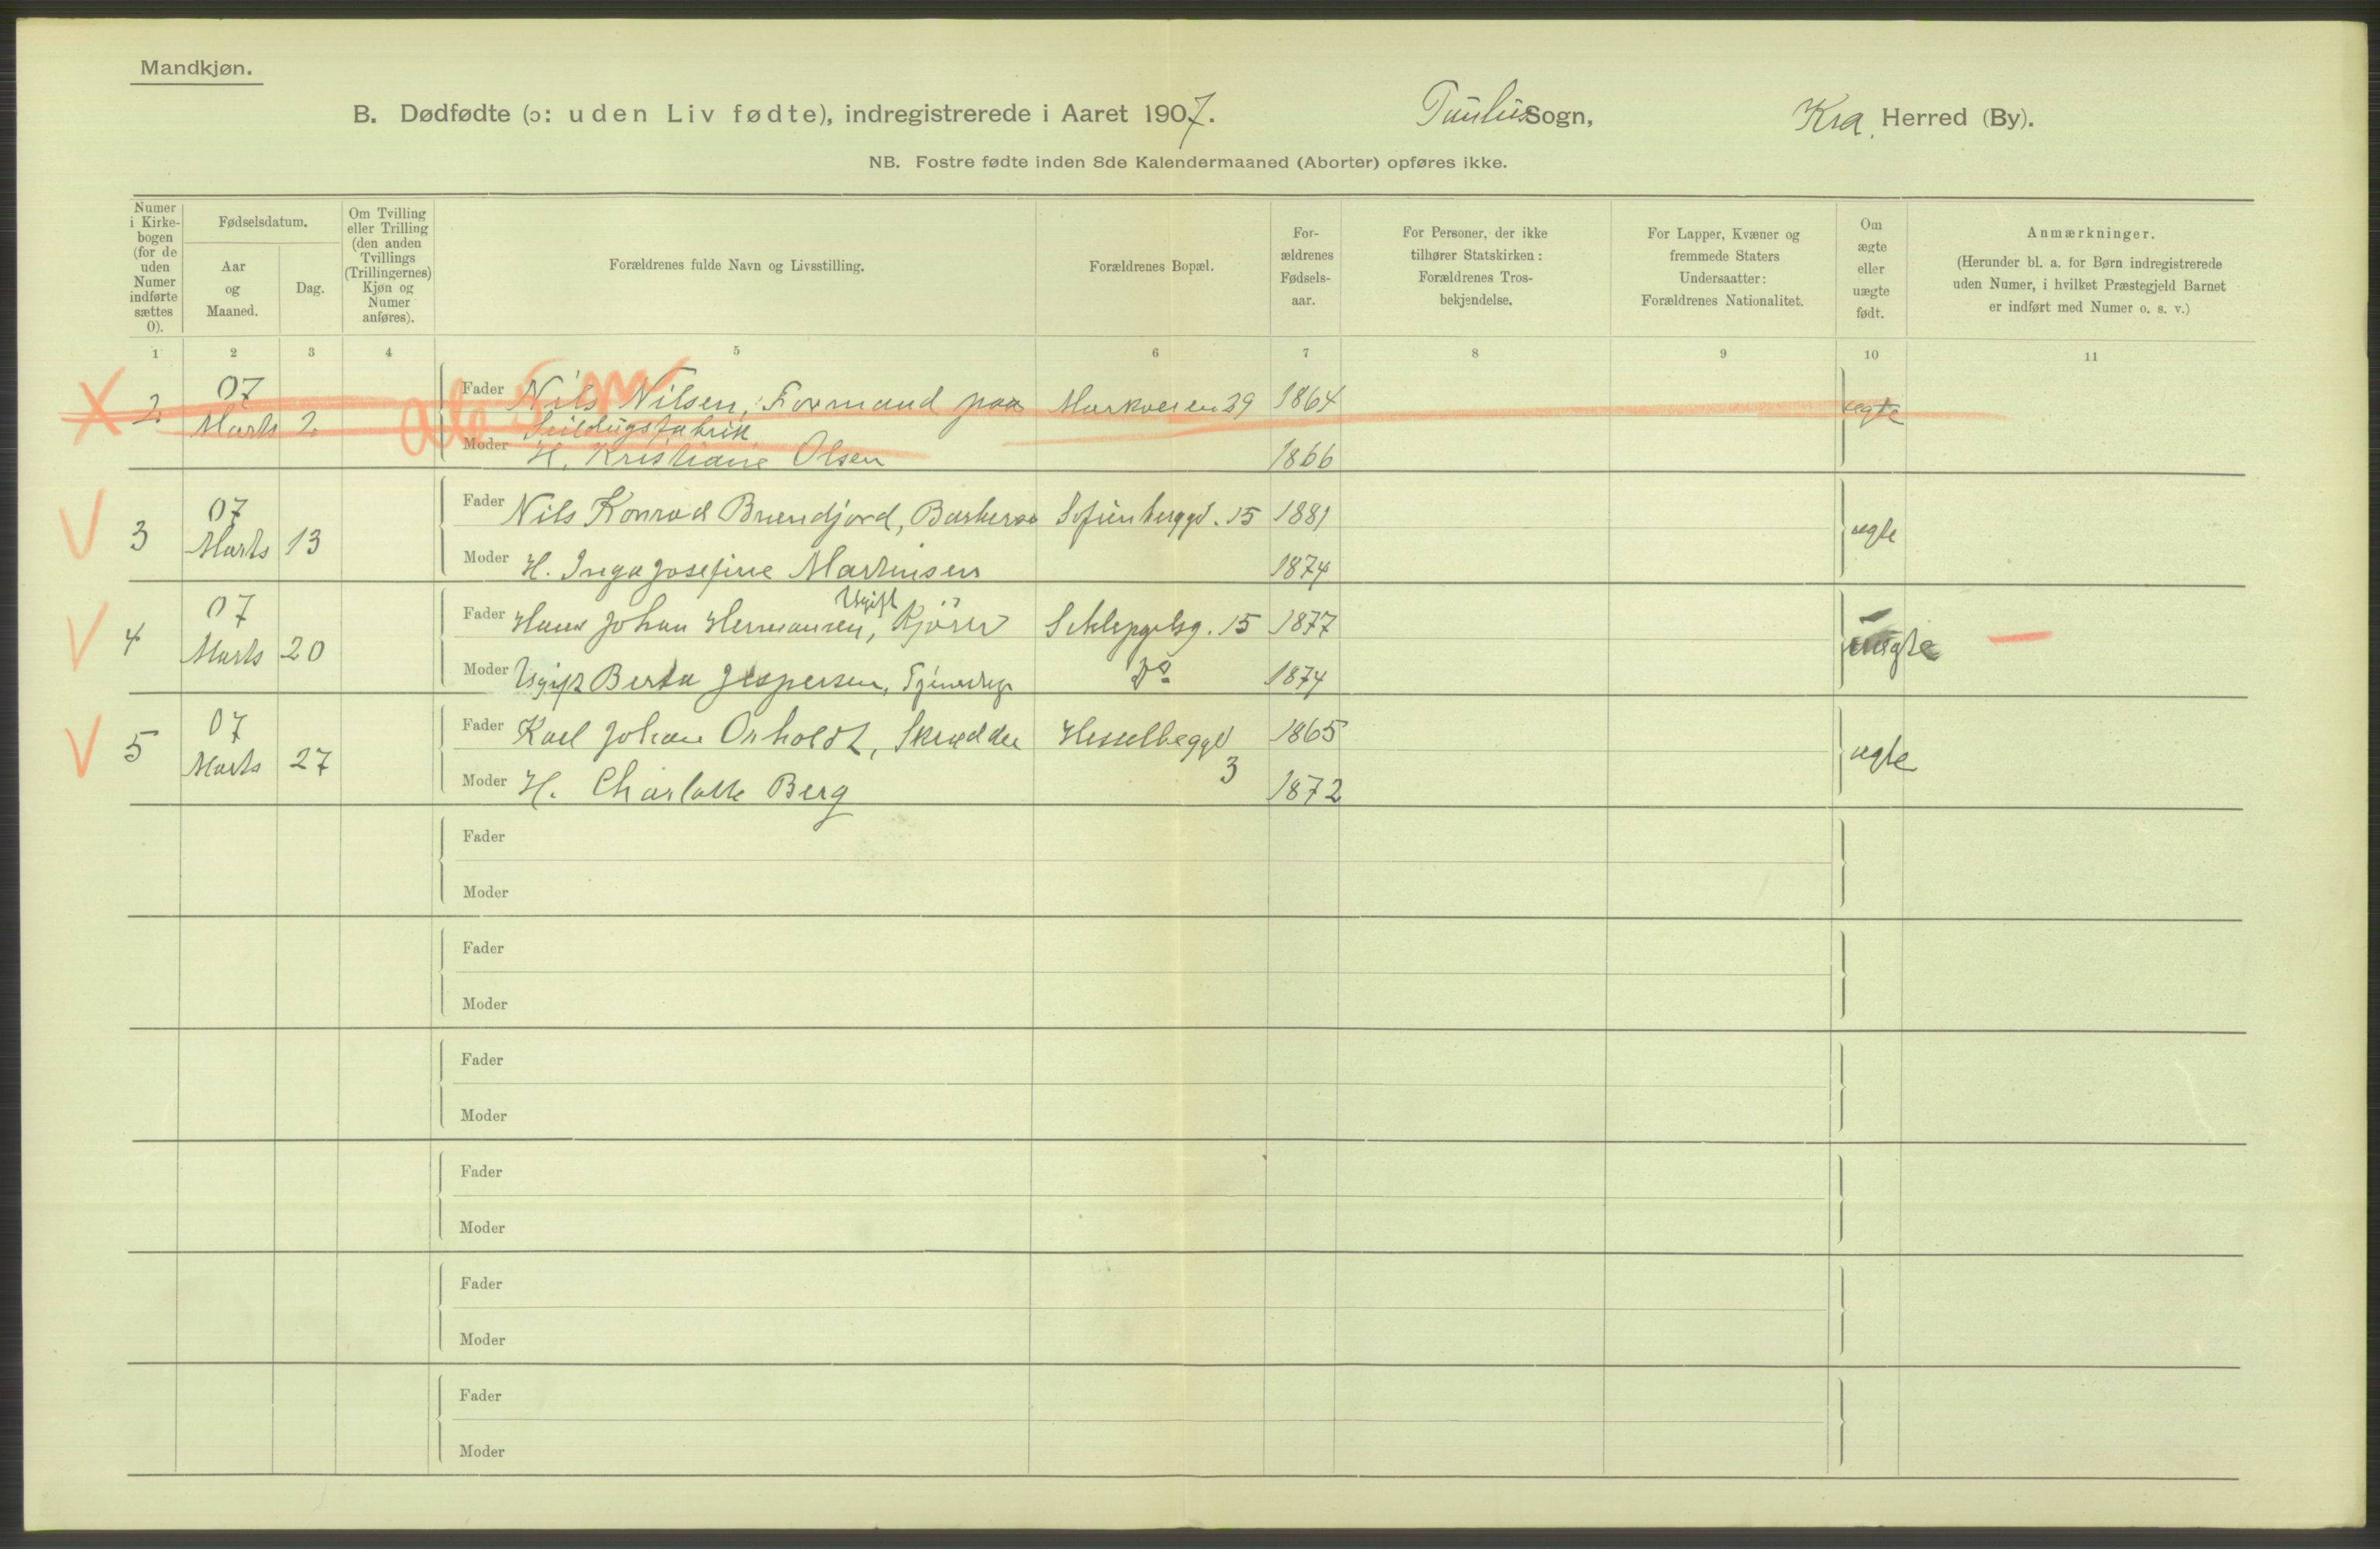 Mandkjøn.
B. Dødfødte (ɔ: uden Liv fødte), indregistrerede i Aaret 1907. Paulus Sogn, Kra. Herred (By).
NB. Fostre fødte inden 8de Kalendermaaned (Aborter) opføres ikke.
Numer i Kirkebogen (for de uden Numer indførte sættes 0).
Fødselsdatum.
Aar og Maaned.
Dag.
Om Tvilling eller Trilling (den anden Tvillings (Trillingernes) Kjøn og Numer anføres).
Forældrenes fulde Navn og Livsstilling.
Forældrenes Bopæl.
Forældrenes Fødselsaar.
For Personer, der ikke tilhører Statskirken: Forældrenes Trosbekjendelse.
For Lapper, Kvæner og fremmede Staters Undersaatter: Forældrenes Nationalitet.
Om ægte eller uægte født.
Anmærkninger.
(Herunder bl. a. for Børn indregistrerede uden Numer, i hvilket Præstegjeld Barnet er indført med Numer o. s. v.)
1 2 3 4 5 6 7 8 9 10 11
2 07 Marts 2 Fader Nils Nilsen, Formand paa Seildugsfabrik Markveien 39 1864 ægte
Moder H. Kristiane Olsen 1866
3 07 Marts 13 Fader Nils Konrad Brendjord, Barber Sofienberggd. 15 1881 ægte
Moder H. Inga Josefine Martinsen 1874
4 07 Marts 20 Fader Hans Johan Hermansen, Ugift Kjører Schleppelsg. 15 1877 uægte
Moder Ugift Berta Jespersen, Do 1874
5 07 Marts 27 Fader Karl Johan Orholdt, Skrædder Hesselbeggd 3 1865 ægte
Moder H. Charlotte Berg 1872
Fader
Moder
Fader
Moder
Fader
Moder
Fader
Moder
Fader
Moder
Fader
Moder